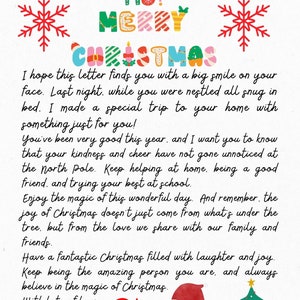 HO!
MERRY
CHRISTMAS
I hope this letter finds you with a big smile on your
face. Last night, while you were nestled all snug in
bed, I made a special trip to your home with
something just for you!
You've been very good this year, and I want you to know
that your kindness and cheer have not gone unnoticed at
the North Pole. Keep helping at home, being a good
friend, and trying your best at school.
Enjoy the magic of this wonderful day. And remember, the
joy of Christmas doesn't just come from what's under the
tree, but from the love we share with our family and
friends.
Have a fantastic Christmas filled with laughter and joy.
Keep being the amazing person you are, and always
believe in the magic of Christmas.